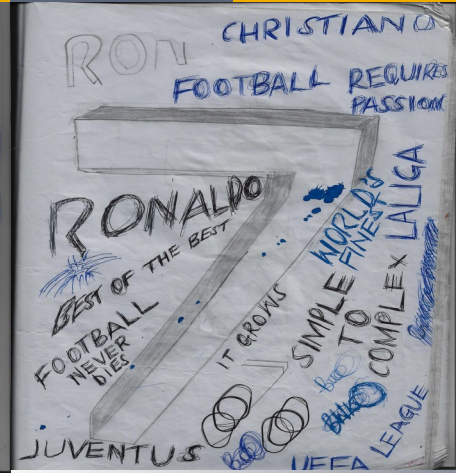 CHRISTIANO
RON
FOOTBALL REQUIRES
PASSION
7
RONALDO
BEST OF THE BEST
FOOTBALL
NEVER
DIES
IT GROWS
SIMPLE
TO
COMPLEX
WORLD'S
FINEST
LALIGA
JUVENTUS
UEFA LEAGUE